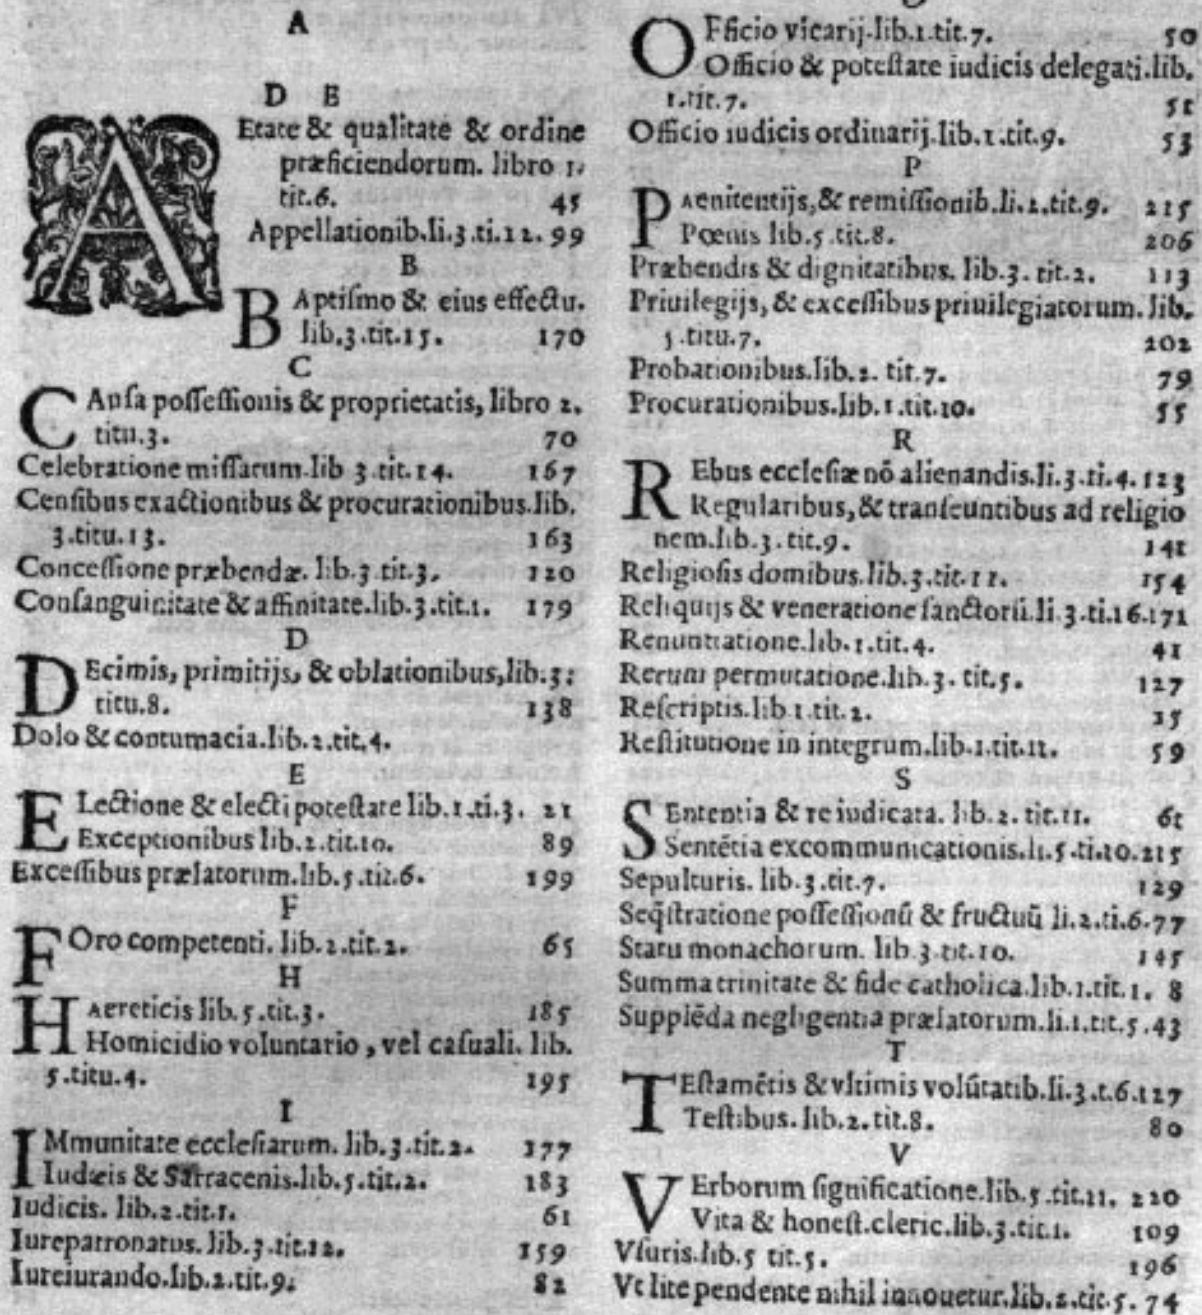 A
D E
AEtate & qualitate & ordine
præficiendorum. libro 1.
tit.6. 45
Appellationib.li.3.ti.12. 99
B
BAptismo & eius effectu.
lib.3.tit.15. 170
C
CAusa possessionis & proprietatis, libro 2.
titu.3. 70
Celebratione missarum.lib 3.tit.14. 167
Censibus exactionibus & procurationibus.lib.
3.titu.13. 163
Concessione præbendæ. lib.3.tit.3. 120
Consanguinitate & affinitate.lib.3.tit.1. 179
D
DEcimis, primitijs, & oblationibus,lib.3:
titu.8. 138
Dolo & contumacia.lib.2.tit.4.
E
ELectione & electi potestate lib.1.ti.3. 21
Exceptionibus lib.2.tit.10. 89
Excessibus prælatorum.lib.5.tit.6. 199
F
FOro competenti. lib.2.tit.2. 65
H
HAereticis lib.5.tit.3. 185
Homicidio voluntario, vel casuali. lib.
5.titu.4. 195
I
IMmunitate ecclesiarum. lib.3.tit.2. 177
Iudæis & Sarracenis.lib.5.tit.2. 183
Iudicis. lib.2.tit.1. 61
Iurepatronatus. lib.3.tit.12. 159
Iureiurando.lib.2.tit.9. 82
OFficio vicarij.lib.1.tit.7. 50
Officio & potestate iudicis delegati.lib.
1.tit.7. 51
Officio iudicis ordinarij.lib.1.tit.9. 53
P
PAenitentijs,& remissionib.li.2.tit.9. 215
Pœnis lib.5.tit.8. 206
Præbendis & dignitatibus. lib.3. tit.2. 113
Priuilegijs, & excessibus priuilegiatorum. lib.
5.titu.7. 202
Probationibus.lib.2. tit.7. 79
Procurationibus.lib.1.tit.10. 55
R
REbus ecclesiæ nõ alienandis.li.3.ti.4.123
Regularibus,& transeuntibus ad religio
nem.lib.3.tit.9. 141
Religiosis domibus.lib.3.tit.11. 154
Reliquijs & veneratione sanctorũ.li.3.ti.16.171
Renuntiatione.lib.1.tit.4. 41
Rerum permutatione.lib.3. tit.5. 127
Rescriptis.lib 1.tit.2. 15
Restitutione in integrum.lib.1.tit.11. 59
S
SEntentia & re iudicata. lib.2. tit.11. 61
Sentẽtia excommunicationis.li.5.ti.10.215
Sepulturis. lib.3.tit.7. 129
Seq̃stratione possessionũ & fructuũ li.2.ti.6.77
Statu monachorum. lib.3.tit.10. 145
Summa trinitate & fide catholica.lib.1.tit.1. 8
Supplẽda negligentia prælatorum.li.1.tit.5.43
T
TEstamẽtis & vltimis volũtatib.li.3.t.6.127
Testibus. lib.2.tit.8. 80
V
VErborum significatione.lib.5.tit.11. 220
Vita & honest.cleric.lib.3.tit.1. 109
Vsuris.lib.5 tit.5. 196
Vt lite pendente nihil innouetur.lib.2.tit.5. 74